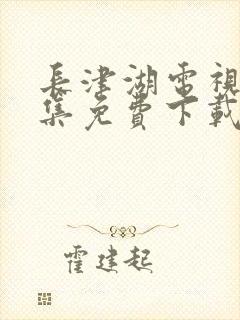 長津湖電視
集免費下載
霍建起